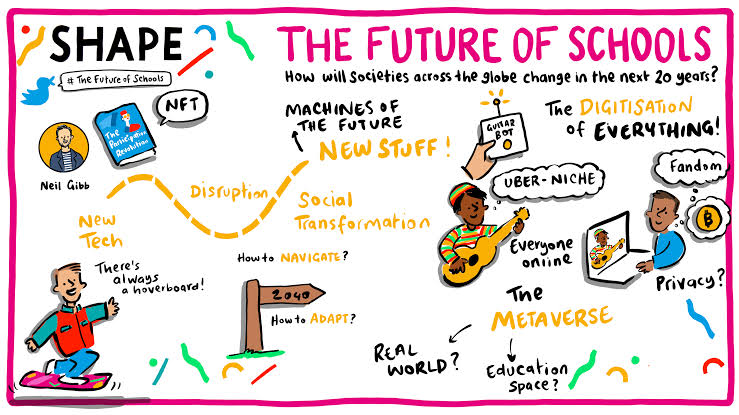 SHAPE
# The Future of Schools
THE FUTURE OF SCHOOLS
How will societies across the globe change in the next 20 years?
NFT
The
Participation
Revolution
Neil Gibb
New
Tech
Disruption
MACHINES OF
THE FUTURE
NEW STUFF!
Social
Transformation
GUITAR
BOT
The DIGITISATION
of EVERYTHING!
UBER-NICHE
Fandom
B
Everyone
online
Privacy?
There's
always
a hoverboard!
How to NAVIGATE?
2040
How to ADAPT?
The
METAVERSE
REAL
WORLD?
Education
space?